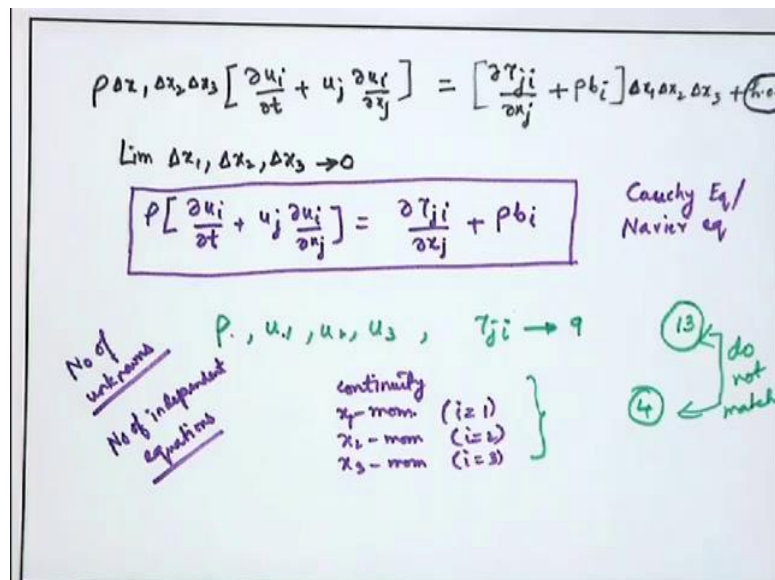 ρ Δx₁ Δx₂ Δx₃ [∂uᵢ/∂t + uⱼ ∂uᵢ/∂xⱼ] = [∂τⱼᵢ/∂xⱼ + ρbᵢ] Δx₁ Δx₂ Δx₃ + h.o
Lim Δx₁, Δx₂, Δx₃ → 0
ρ[∂uᵢ/∂t + uⱼ ∂uᵢ/∂xⱼ] = ∂τⱼᵢ/∂xⱼ + ρbᵢ
Cauchy Eq/
Navier eq
No of
unknowns
ρ, u₁, u₂, u₃, τⱼᵢ → 9
13
do
not
match
No of independent
equations
continuity
x₁-mom. (i=1)
x₂-mom (i=2)
x₃-mom (i=3)
4